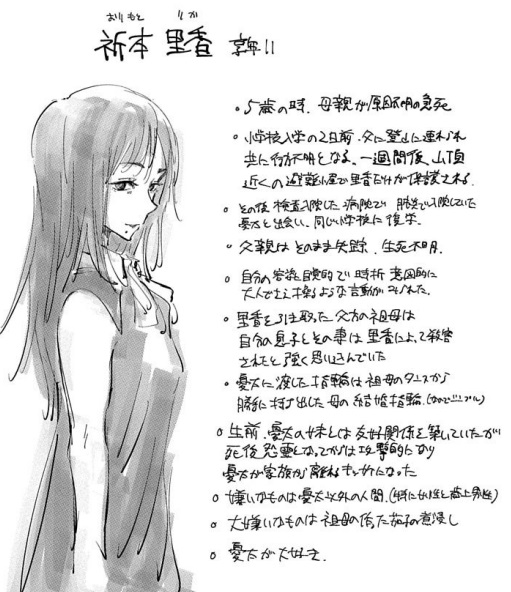 おりもと りか
祈本 里香 享年11
。5歳の時、母親が原因不明の急死
。小学校入学の2日前、父に登山に連れられ
共に行方不明となる。一週間後、山頂
近くの避難小屋で里香だけが保護される。
。その後、検査入院した病院で、肺炎で入院していた
憂太と出会い、同じ小学校に復学。
。父親はそのまま失踪、生死不明。
。自分の容姿に自覚的で時折意図的に
大人でさえ操るような言動がみられた。
。里香を引き取った父方の祖母は
自分の息子とその妻は里香によって殺害
されたと強く思い込んでいた
。憂太に渡した指輪は祖母のタンスから
勝手に持ち出した母の結婚指輪。(なのでシンプル)
。生前、憂太の妹とは友好関係を築いていたが
死後怨霊となってからは攻撃的になり
憂太が家族から離れるキッカケになった
。嫌いなものは憂太以外の人間。(特に女性と歳上男性)
。大嫌いなものは祖母の作った茄子の煮浸し
。憂太が大好き。